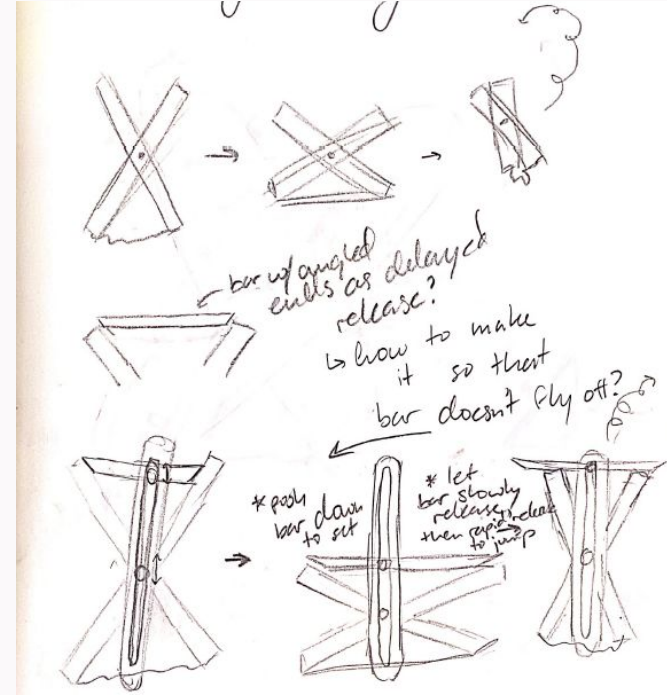 bar w/ angled
ends as delayed
release?
↳ how to make
it so that
bar doesn't fly off?
* push
bar down
to set
* let
bar slowly
release,
then rapid release
to jump